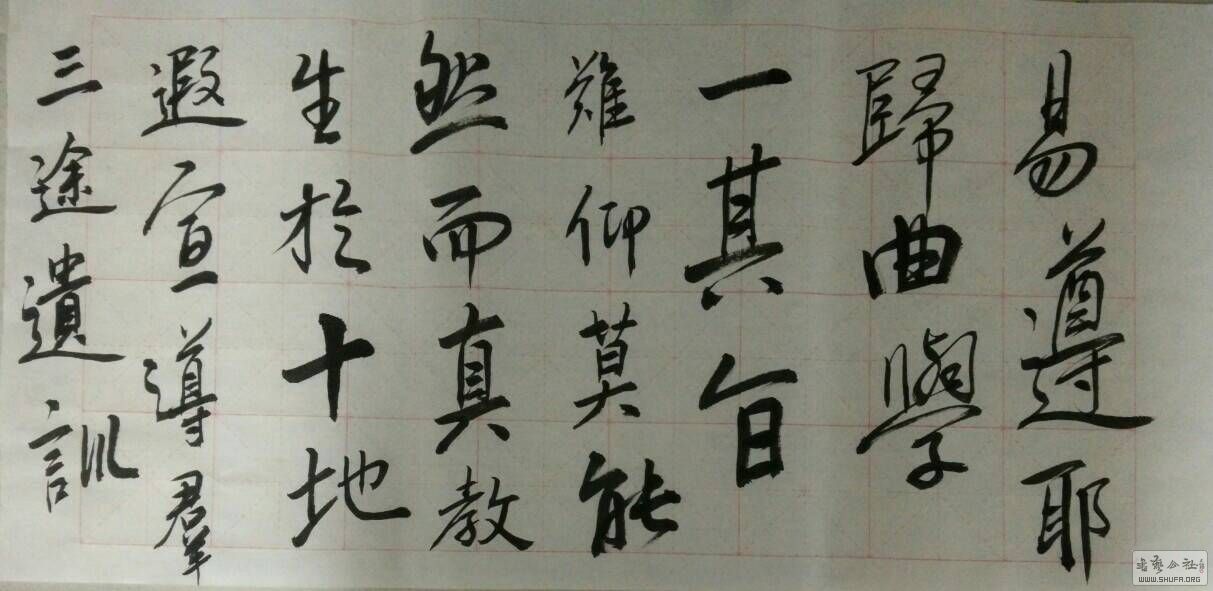 三途遺訓
遐宣導羣
生於十地
然而真教
難仰莫能
一其旨
歸曲學
易遵耶
書藝公社
WWW.SHUFA.ORG